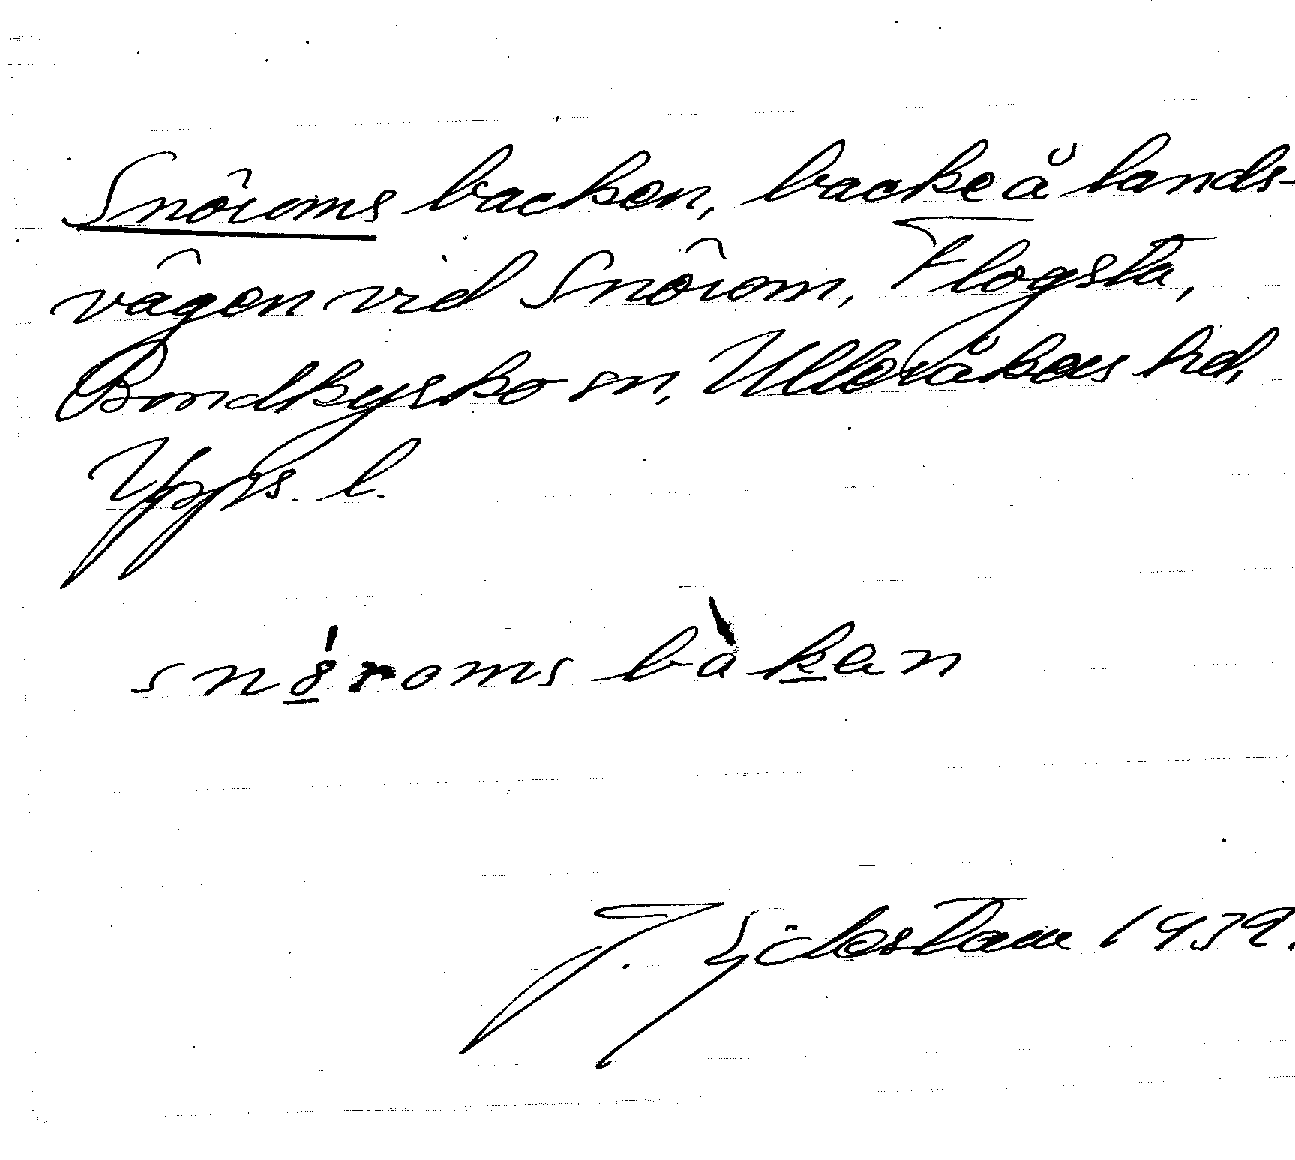 Snöroms backen, backe å lands-
vägen vid Snörom, Flogsta,
Bondkyrko sn, Ulleråkers hd,
Upps. l.
snöroms bàkan
J. 1939.